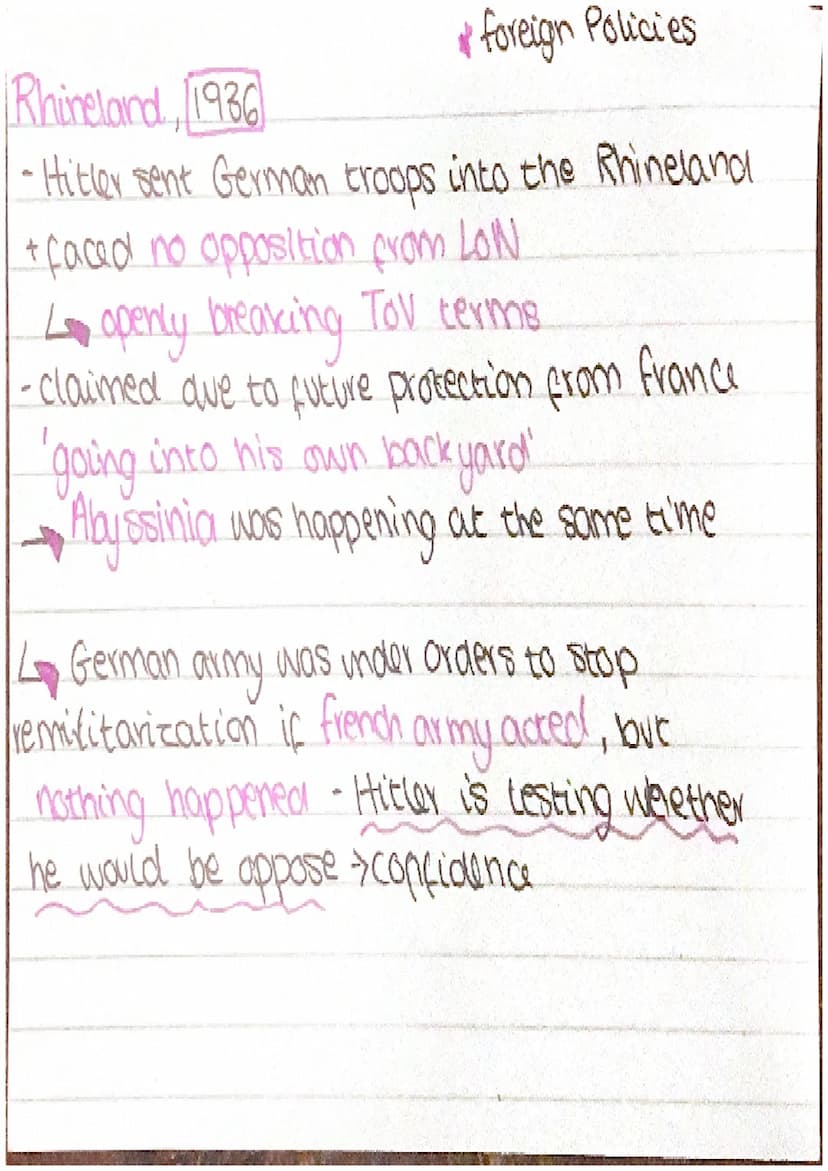 * foreign Policies
Rhineland, 1936
- Hitler sent German troops into the Rhineland
+ faced no opposition from LoN
↳ openly breaking ToV terms
- claimed due to future protection from france
'going into his own backyard'
→ Abyssinia was happening at the same time
↳ German army was under orders to stop
remilitarization if french army acted, but
nothing happened - Hitler is testing whether
he would be oppose → confidence